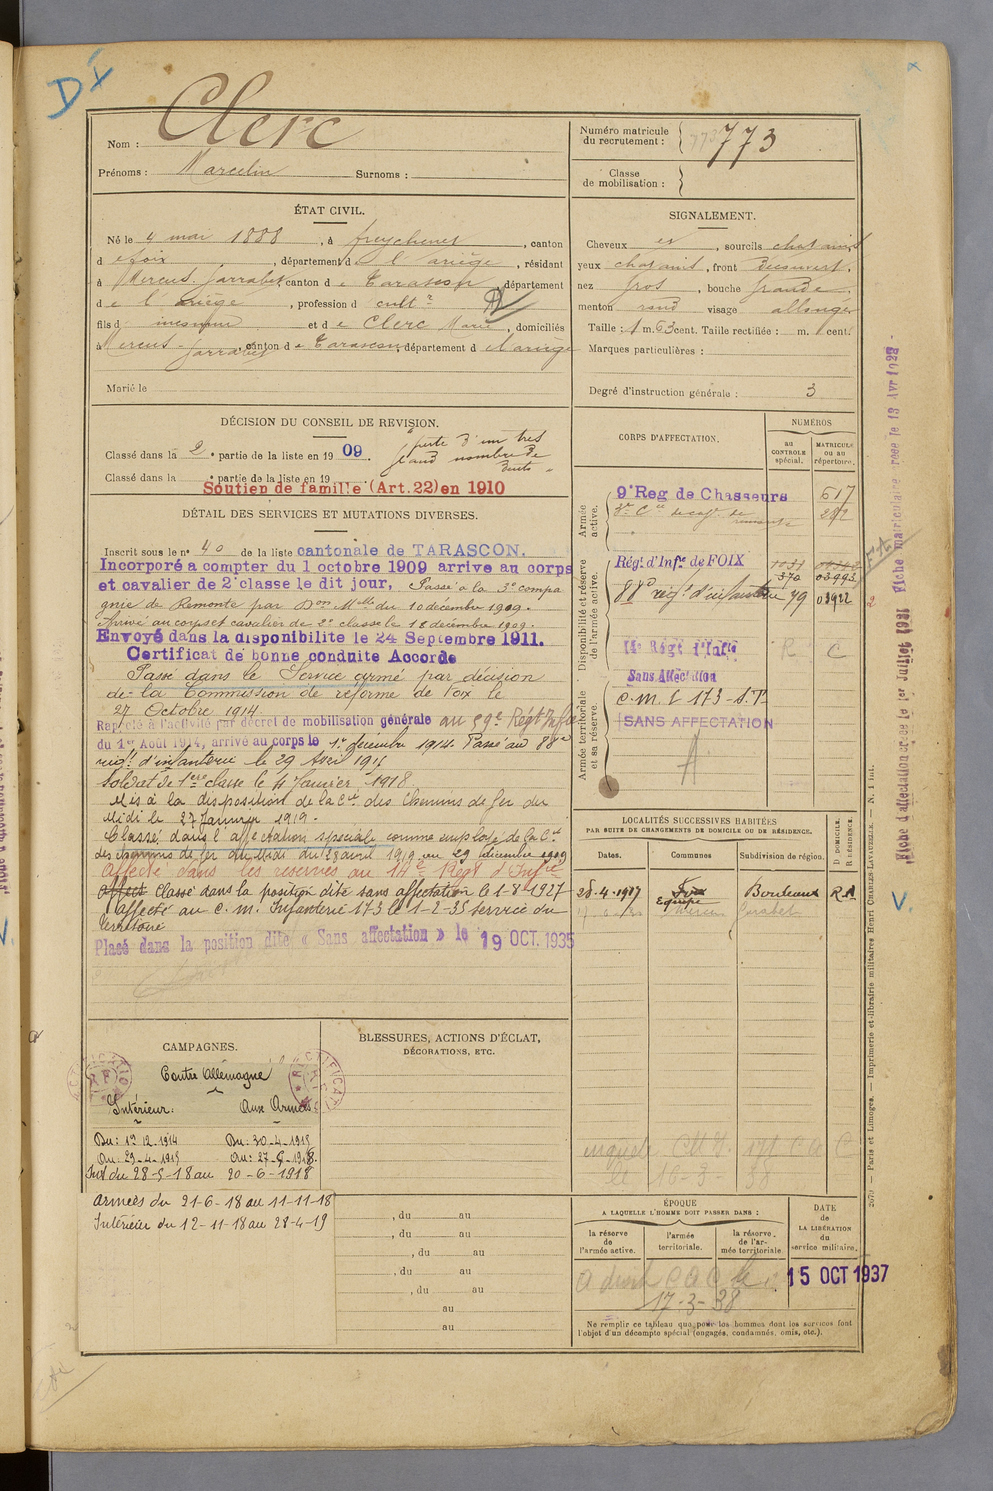 DI
Nom : Clerc
Prénoms : Marcelin Surnoms :
Numéro matricule du recrutement : 773
Classe de mobilisation :
ÉTAT CIVIL.
Né le 4 mai 1888, à Freychenet, canton
de Foix, département de l'ariège, résidant
à Mercus-Garrabet canton de Tarascon, département
de l'ariège, profession d cultr
fils d' inconnu et de Clerc Marie, domiciliés
à Mercus-Garrabet, canton de Tarascon, département d l'ariège
Marié le
SIGNALEMENT.
Cheveux et, sourcils chatains
yeux chatains, front découvert,
nez gros, bouche grande,
menton rond visage allongé
Taille : 1 m. 63 cent. Taille rectifiée : m. cent.
Marques particulières :
Degré d'instruction générale : 3
DÉCISION DU CONSEIL DE REVISION.
Classé dans la 2e partie de la liste en 1909.
perte d'un très grand nombre de dents
Classé dans la e partie de la liste en 19
Soutien de famille (Art. 22) en 1910
DÉTAIL DES SERVICES ET MUTATIONS DIVERSES.
Inscrit sous le n° 40 de la liste cantonale de TARASCON.
Incorporé a compter du 1 octobre 1909 arrive au corps
et cavalier de 2e classe le dit jour, Passé à la 3e compa
gnie de Remonte par Don Mlle du 10 décembre 1909.
Arrivé au corps et cavalier de 2e classe le 18 décembre 1909.
Envoyé dans la disponibilite le 24 Septembre 1911.
Certificat de bonne conduite Accorde
Passé dans le Service armé par décision
de la Commission de réforme de Foix le
27 Octobre 1914.
Rappelé à l'activité par décret de mobilisation générale au 59e Régt Infie
du 1er Août 1914, arrivé au corps le 1er décembre 1914. Passé au 88e
régt d'infanterie le 29 Avril 1915
Soldat de 1ere classe le 4 Janvier 1918
Mis à la disposition de la Cie des Chemins de fer du
Midi le 27 Janvier 1919.
Classé dans l'affectation spéciale comme employé de la Cie
des chemins de fer du Midi du 28 avril 1919 au 29 décembre 1909
Affecté dans les réserves au 14e Régt d'Infie
Affecté Classé dans la position dite sans affectation le 1-8-1927
Affecté au C. m. Infanterie 173 le 1-2-35 service du
Territoire
Placé dans la position dite « Sans affectation » le 19 OCT. 1935
CORPS D'AFFECTATION.
NUMÉROS
au CONTROLE spécial.
MATRICULE ou au répertoire.
Armée active.
9e Reg de Chasseurs 617
Disponibilité et réserve de l'armée active.
Régt d'Infie de FOIX 370 03993
88e régt d'infanterie 79 03922
14e Régt d'Infie R C
Sans Affectation
Armée territoriale et sa réserve.
C.M.I 173 - S.T.
SANS AFFECTATION
A
LOCALITÉS SUCCESSIVES HABITÉES
PAR SUITE DE CHANGEMENTS DE DOMICILE OU DE RÉSIDENCE.
Dates. Communes Subdivision de région. D DOMICILE. R RÉSIDENCE.
28-4-1927 Foix Bordeaux R.A
Mercus Garabet
CAMPAGNES.
Contre Allemagne
Intérieur: Aux Armées
Du: 1er 12-1914 Du: 30-4-1915
Au: 29-4-1915 Au: 27-5-1918.
Int du 28-5-18 au 20-6-1918
Armées du 21-6-18 au 11-11-18
Intérieur du 12-11-18 au 28-4-19
RECTIFICATION
BLESSURES, ACTIONS D'ÉCLAT,
DÉCORATIONS, ETC.
, du au
, du au
, du au
, du au
, du au
au
au
le 16-3-38
ÉPOQUE
A LAQUELLE L'HOMME DOIT PASSER DANS :
la réserve de l'armée active.
l'armée territoriale.
la réserve de l'armée territoriale.
DATE de LA LIBÉRATION du service militaire.
17-3-38
15 OCT 1937
Ne remplir ce tableau que pour les hommes dont les services font
l'objet d'un décompte spécial (engagés, condamnés, omis, etc.).
Paris et Limoges. — Imprimerie et librairie militaires Henri CHARLES-LAVAUZELLE. —
Fiche d'affectation créée le 1er Juillet 1921 Fiche matriculaire
V.